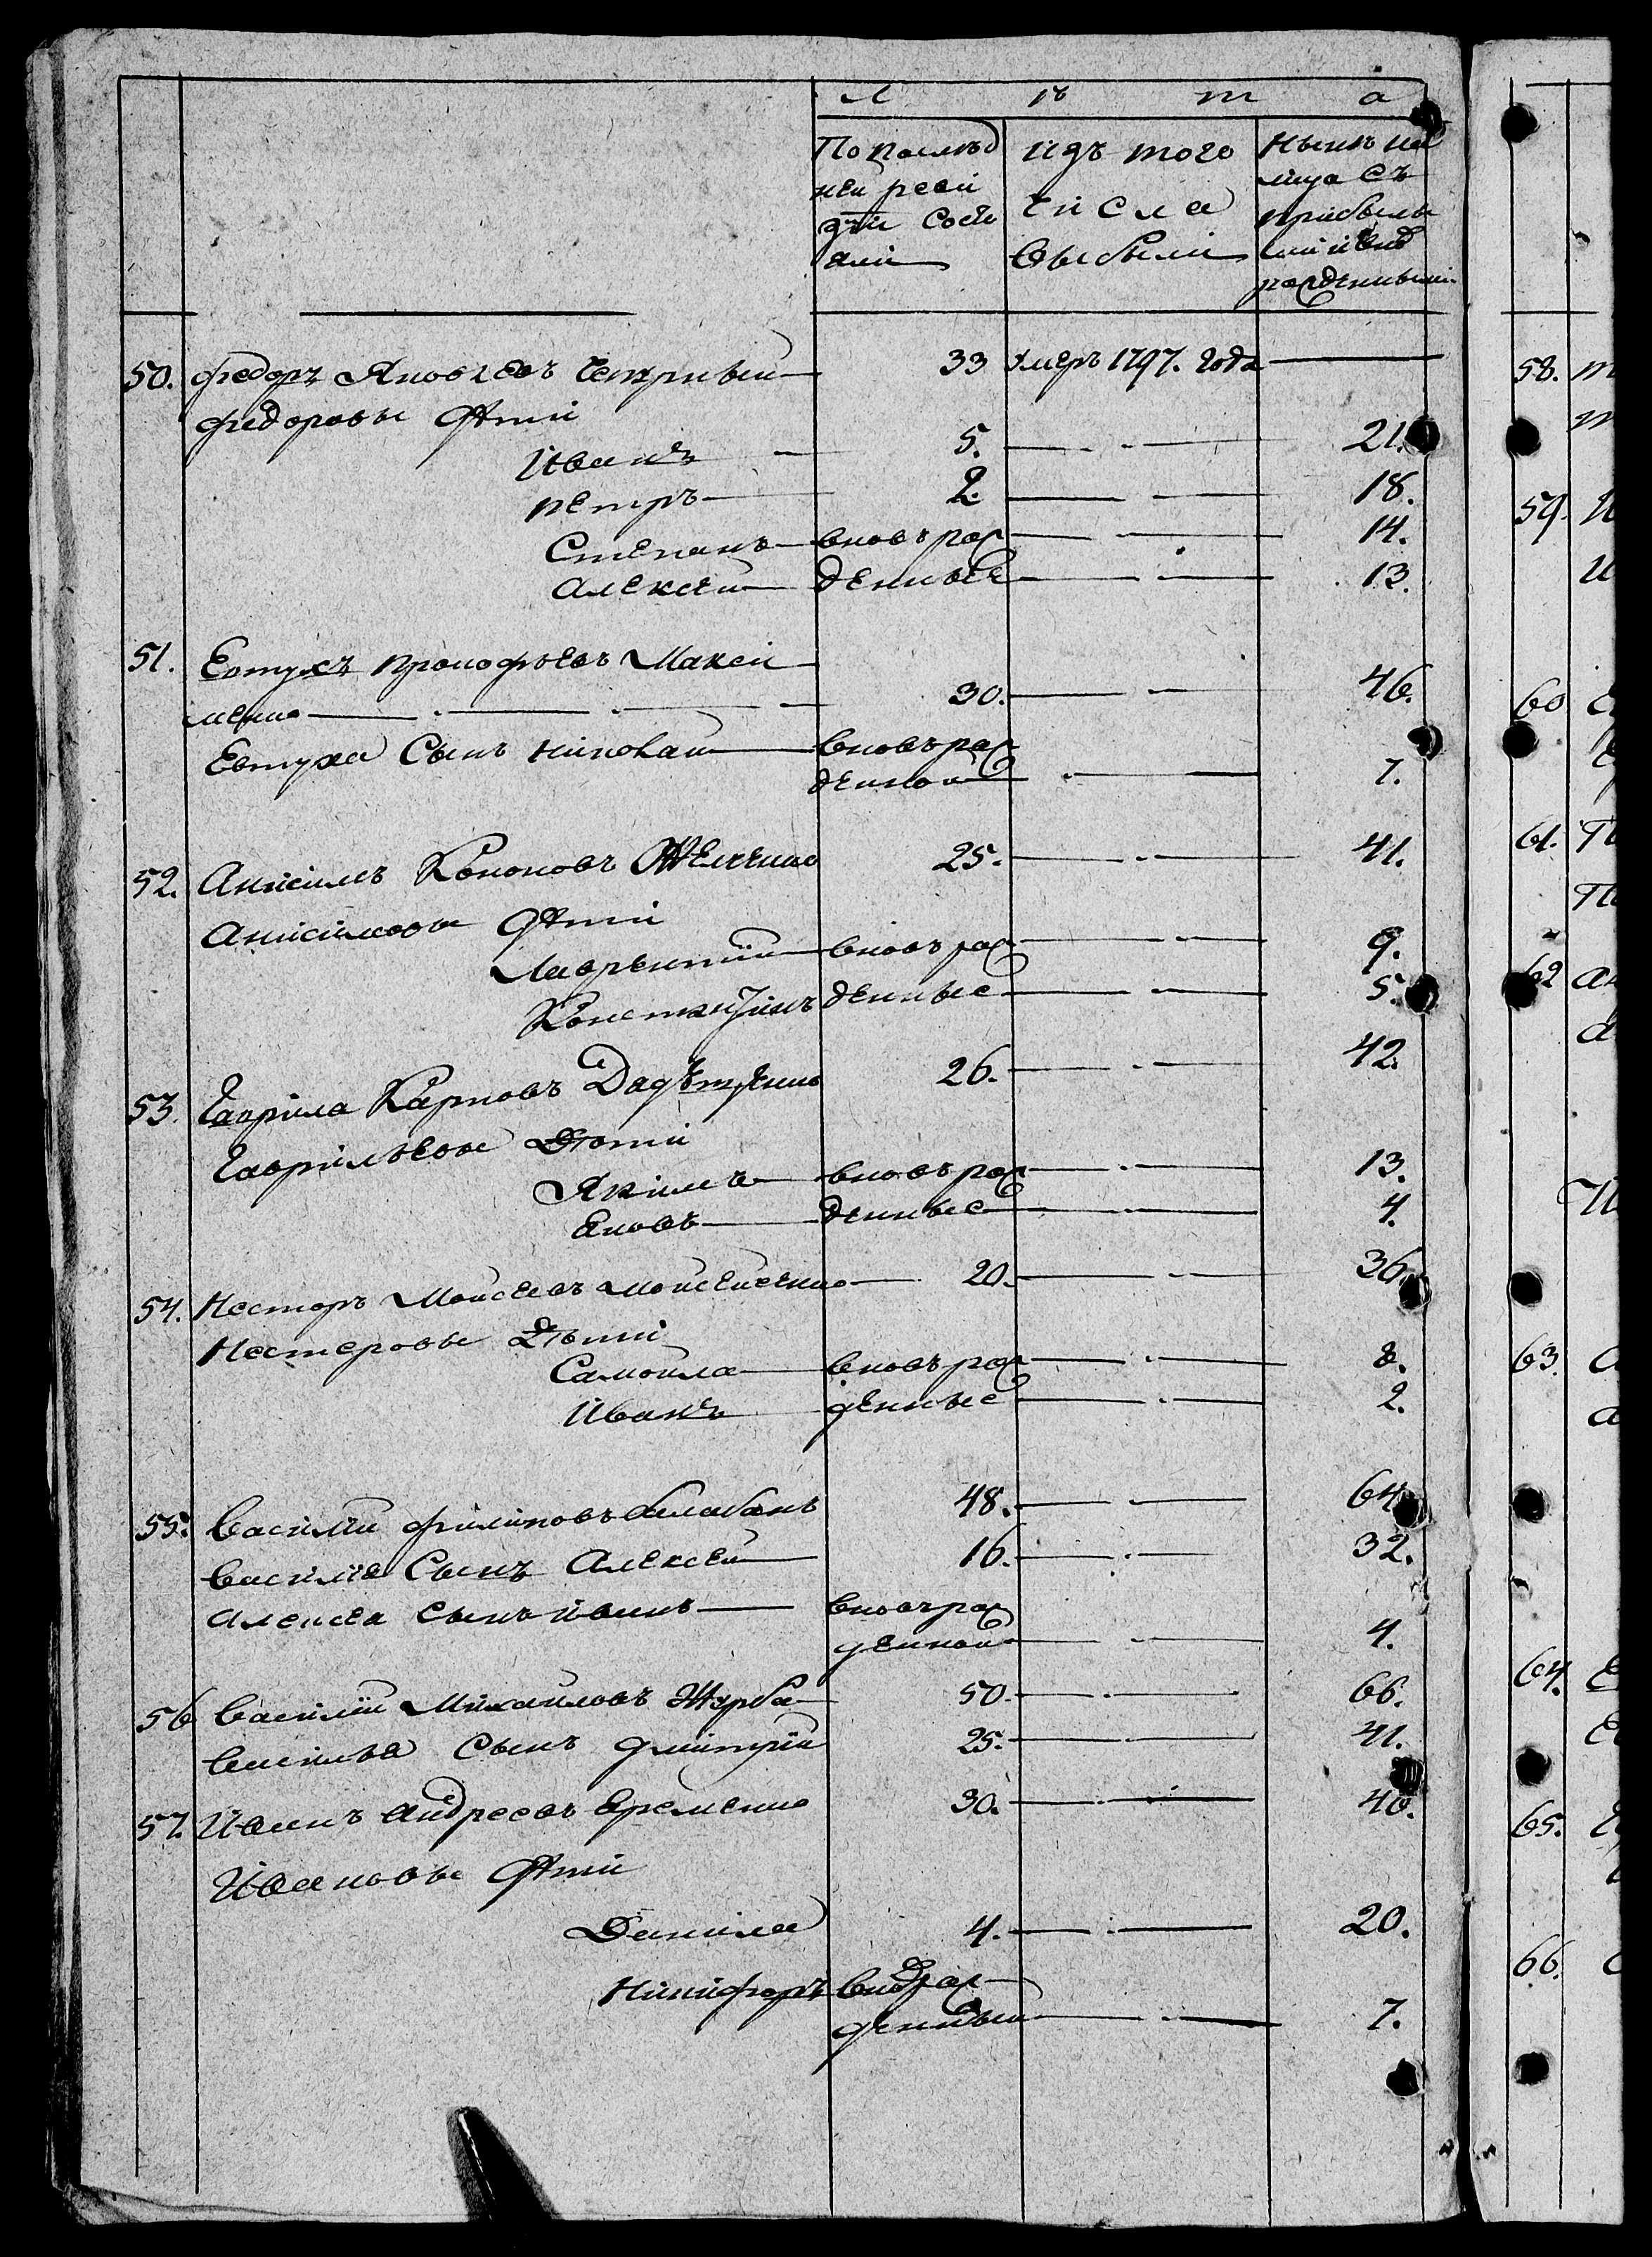 л ѣ т а
По послѣд
ней реви
зіи состо
яли
изъ того
числа
выбыли
Нынѣ на
лицо съ
прибылы
ми и внов
рожденными
50. Федоръ Яковлевъ 33 умеръ 1797. года
Федоровы дѣти
Иванъ 5. 21.
Петръ 2. 18.
Степанъ вновь рож 14.
Алексѣй денные 13.
51. Евтухъ Прокофьевъ Макси
менко 30. 46.
Евтуха сынъ Николай вновь рож
денной 7.
52. Анисимъ Кононовъ 25. 41.
Анисимовы дѣти
Лаврентій вновь рож 9.
Константинъ денные 5.
53. Гаврила Карповъ 26. 42.
Гавриловы дѣти
Якимъ вновь рож 13.
Яковъ денные 4.
54. Несторъ Моисеевъ Моисеенко 20. 36.
Нестеровы дѣти
Самойла вновь рож 8.
Иванъ денные 2.
55. Василій Филиповъ Балабанъ 48. 64.
Василія сынъ Алексѣй 16. 32.
Алексѣя сынъ Иванъ вновь рож
денной 4.
56 Василій Михайловъ Журба 50. 66.
Василья сынъ Дмитрій 25. 41.
57. Иванъ Андреевъ Еременко 30. 46.
Ивановы дѣти
Данила 4. 20.
Никифоръ вновь рож
денный 7.
58.
59.
60
61.
62
63.
64.
65.
66.